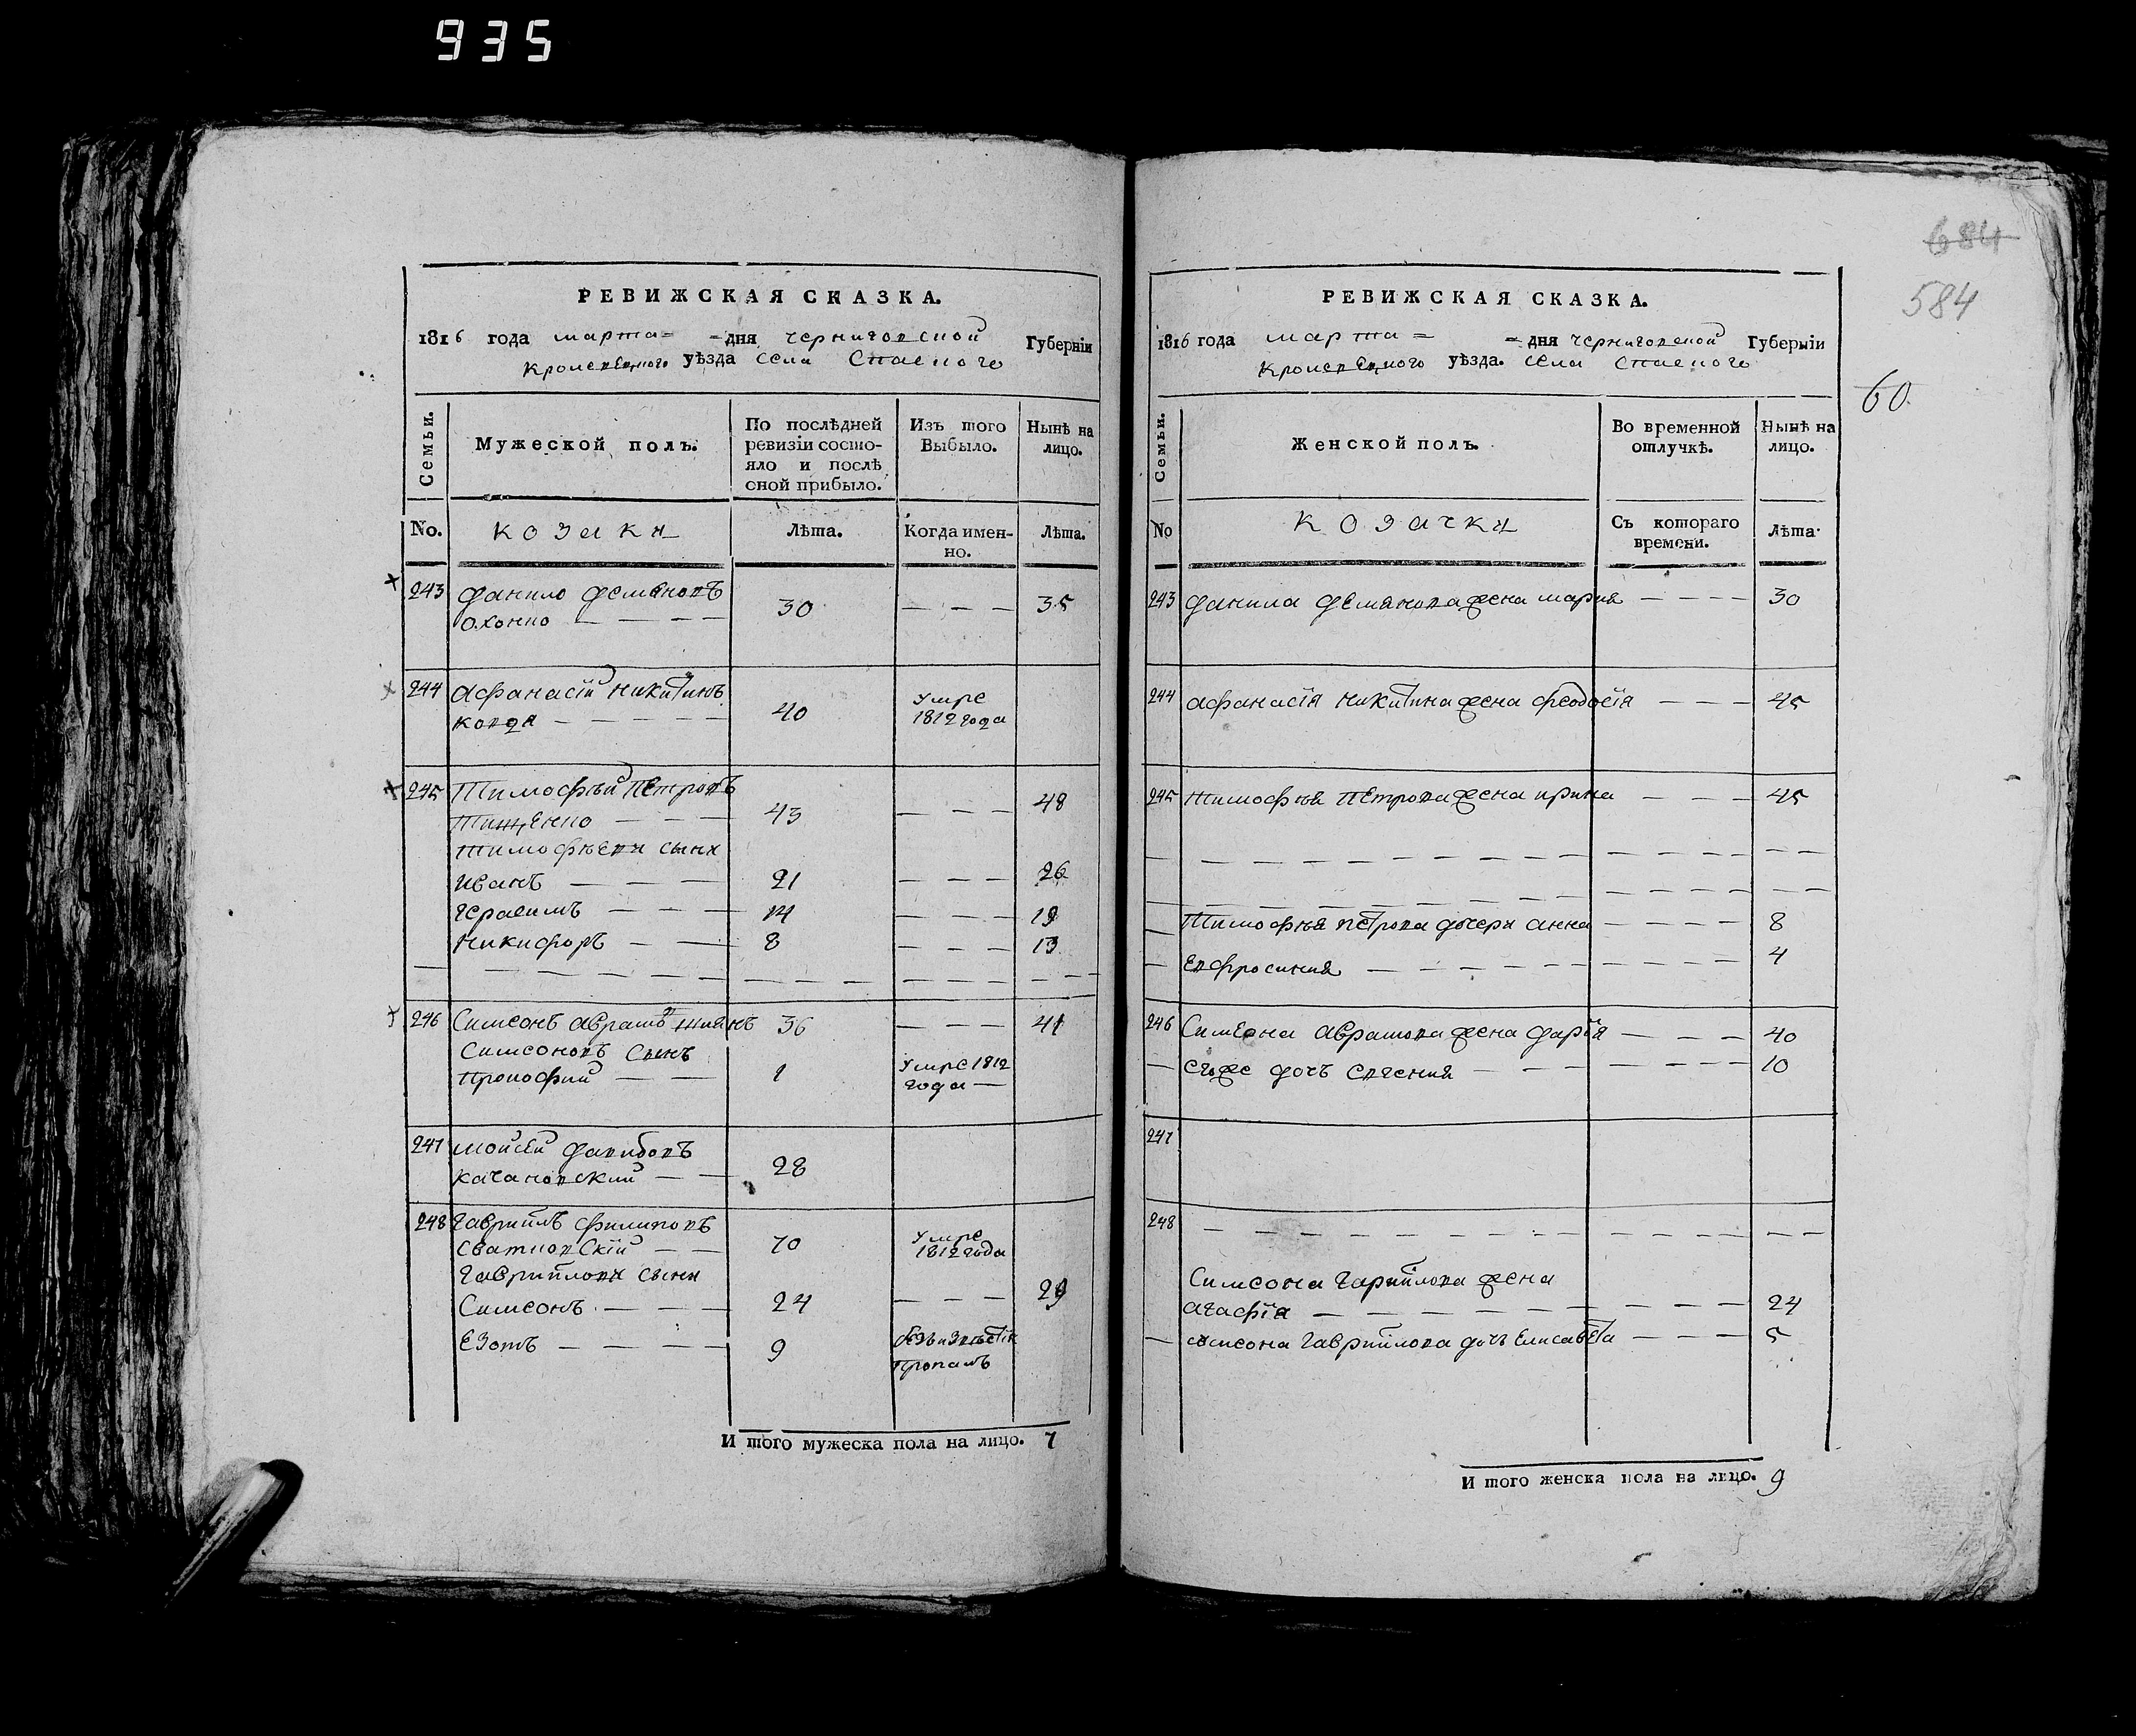 935
РЕВИЖСКАЯ СКАЗКА.
1816 года марта = = дня Черниговской Губерніи
Кролевецкого уѣзда села Спаского
Семьи.
Мужеской полъ.
По послѣдней ревизіи состо-
яло и послѣ
оной прибыло.
Изъ того
Выбыло.
Нынѣ на
лицо.
No.
козаки
Лѣта.
Когда имен-
но.
Лѣта.
243 Данило Демяновъ
Охонко — — — — 30 — — — 35
244 Афанасій Никитинъ
Ковда — — — — — 40 Умре
1812 года
245 Тимофѣй Петровъ
Тищенко — — — 43 — — — 48
Тимофѣеви сыни
Иванъ — — — 21 — — — 26
Герасимъ — — — 14 — — — 19
Никифоръ — — 8 — — — 13
246 Симеонъ Аврамъ 36 — — — 41
Симеоновъ Сынъ
Прокофий — — 1 Умре 1812
года —
247 Мойсей Давидовъ
Качановский — — 28
248 Гавриилъ Филиповъ
Сватковскій — — 70 Умре
1812 года
Гавриилови сыни
Симеонъ — — — 24 — — — 29
Езотъ — — — — 9 безъизвѣстно
пропалъ
И того мужеска пола на лицо. 7
684
584
60.
РЕВИЖСКАЯ СКАЗКА.
1816 года марта = = дня Черниговской Губерніи
Кролевецкого уѣзда. села Спаского
Семьи.
Женской полъ.
Во временной
отлучкѣ.
Нынѣ на
лицо.
No
козачки
Съ котораго
времени.
Лѣта.
243 Данила Демянова жена Мария — — — — 30
244 Афанасія Никитина жена Феодосія — — — 45
245 Тимофѣя Петрова жена Ирина — — — 45
Тимофѣя Петрова дочери Анна — — — — 8
Евфросиния — — — — 4
246 Симеона Аврамова жена Дарія — — — 40
Егоже дочь Евгения — — — — 10
247
248
Симеона Гариилова жена
Агафія — — — — 24
Симеона Гавриилова дочь Елисавета — — — — 5
И того женска пола на лицо. 9